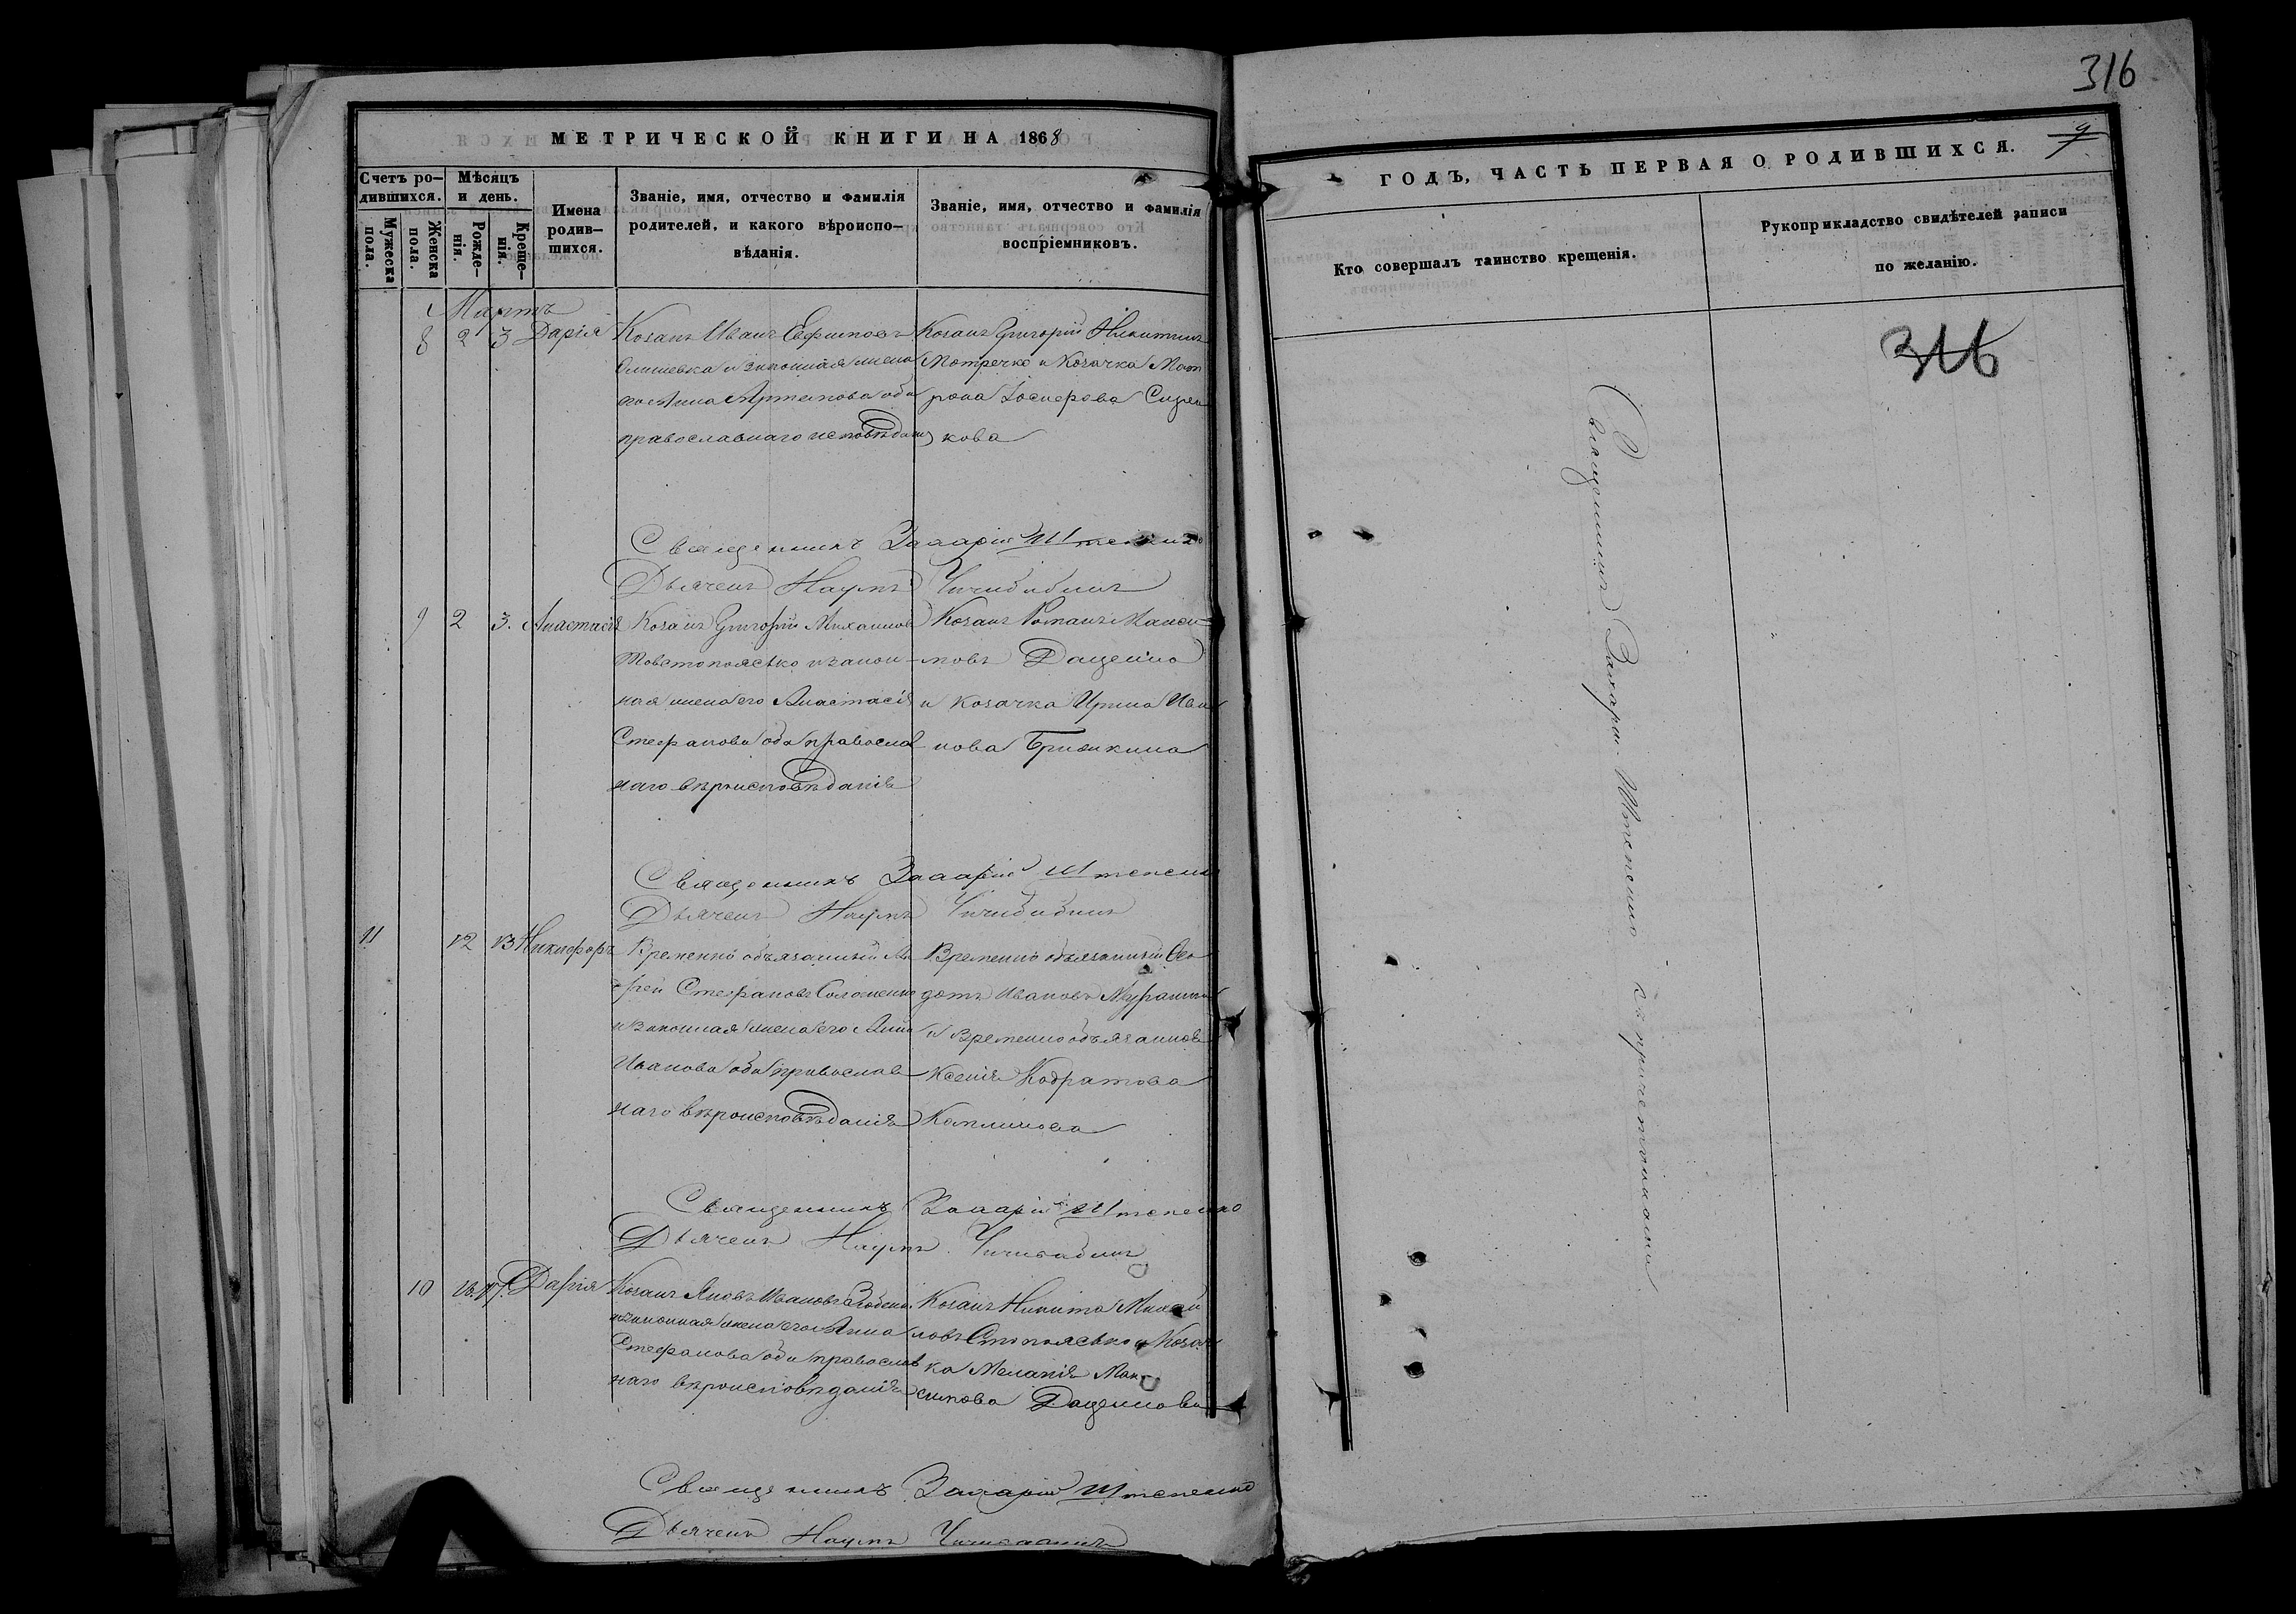 МЕТРИЧЕСКОЙ КНИГИ НА 1868
Счетъ ро-
дившихся.
Мѣсяцъ
и день.
Мужеска
пола.
Женска
пола.
Рожде-
нія.
Креще-
нія.
Имена
родив-
шихся.
Званіе, имя, отчество и фамилія
родителей, и какого вѣроиспо-
вѣданія.
Званіе, имя, отчество и фамилія
воспріемниковъ.
Мартъ
8 2 3 Дарія
Козакъ Иванъ Ефимовъ
и законная жена
его Анна Артемова оба
православнаго исповѣданія
Козакъ Григорій Никитинъ
Мотречко и Козачка Мот
рона Іосифова
кова
Священникъ Захарій Штепенко
Дьячекъ Наумъ
9 2 3. Анастасія
Козакъ Григорій Михаиловъ
Товстопоясько и закон-
ная жена его Анастасія
Стефанова оба православ
наго вѣроисповѣданія
Козакъ Романъ Макси-
мовъ Даценко
и Козачка Ирина Ива
нова
Священникъ Захарій Штепенко
Дьячекъ Наумъ
11 12 13 Никифоръ
Временно обязанный Ан
дрей Стефановъ Соломенко
и законная жена его Анна
Иванова оба православ
наго вѣроисповѣданія
Временно обязанный Ѳео
дотъ Ивановъ
и Временно обязанная
Ксенія Кодратова
Священникъ Захарій Штепенко
Дьячекъ Наумъ
10 16. 17. Дарія
Козакъ Яковъ Ивановъ
и законная жена его Анна
Стефанова оба православ
наго вѣроисповѣданія
Козакъ Никита Михай
ловъ и Козач
ка Меланія Мак-
симова Даценкова
Священникъ Захарій Штепенко
Дьячекъ Наумъ
316
9
ГОДЪ, ЧАСТЬ ПЕРВАЯ О РОДИВШИХСЯ.
Кто совершалъ таинство крещенія.
Рукоприкладство свидѣтелей записи
по желанію.
316
Священникъ Захарій Штепенко съ причетниками